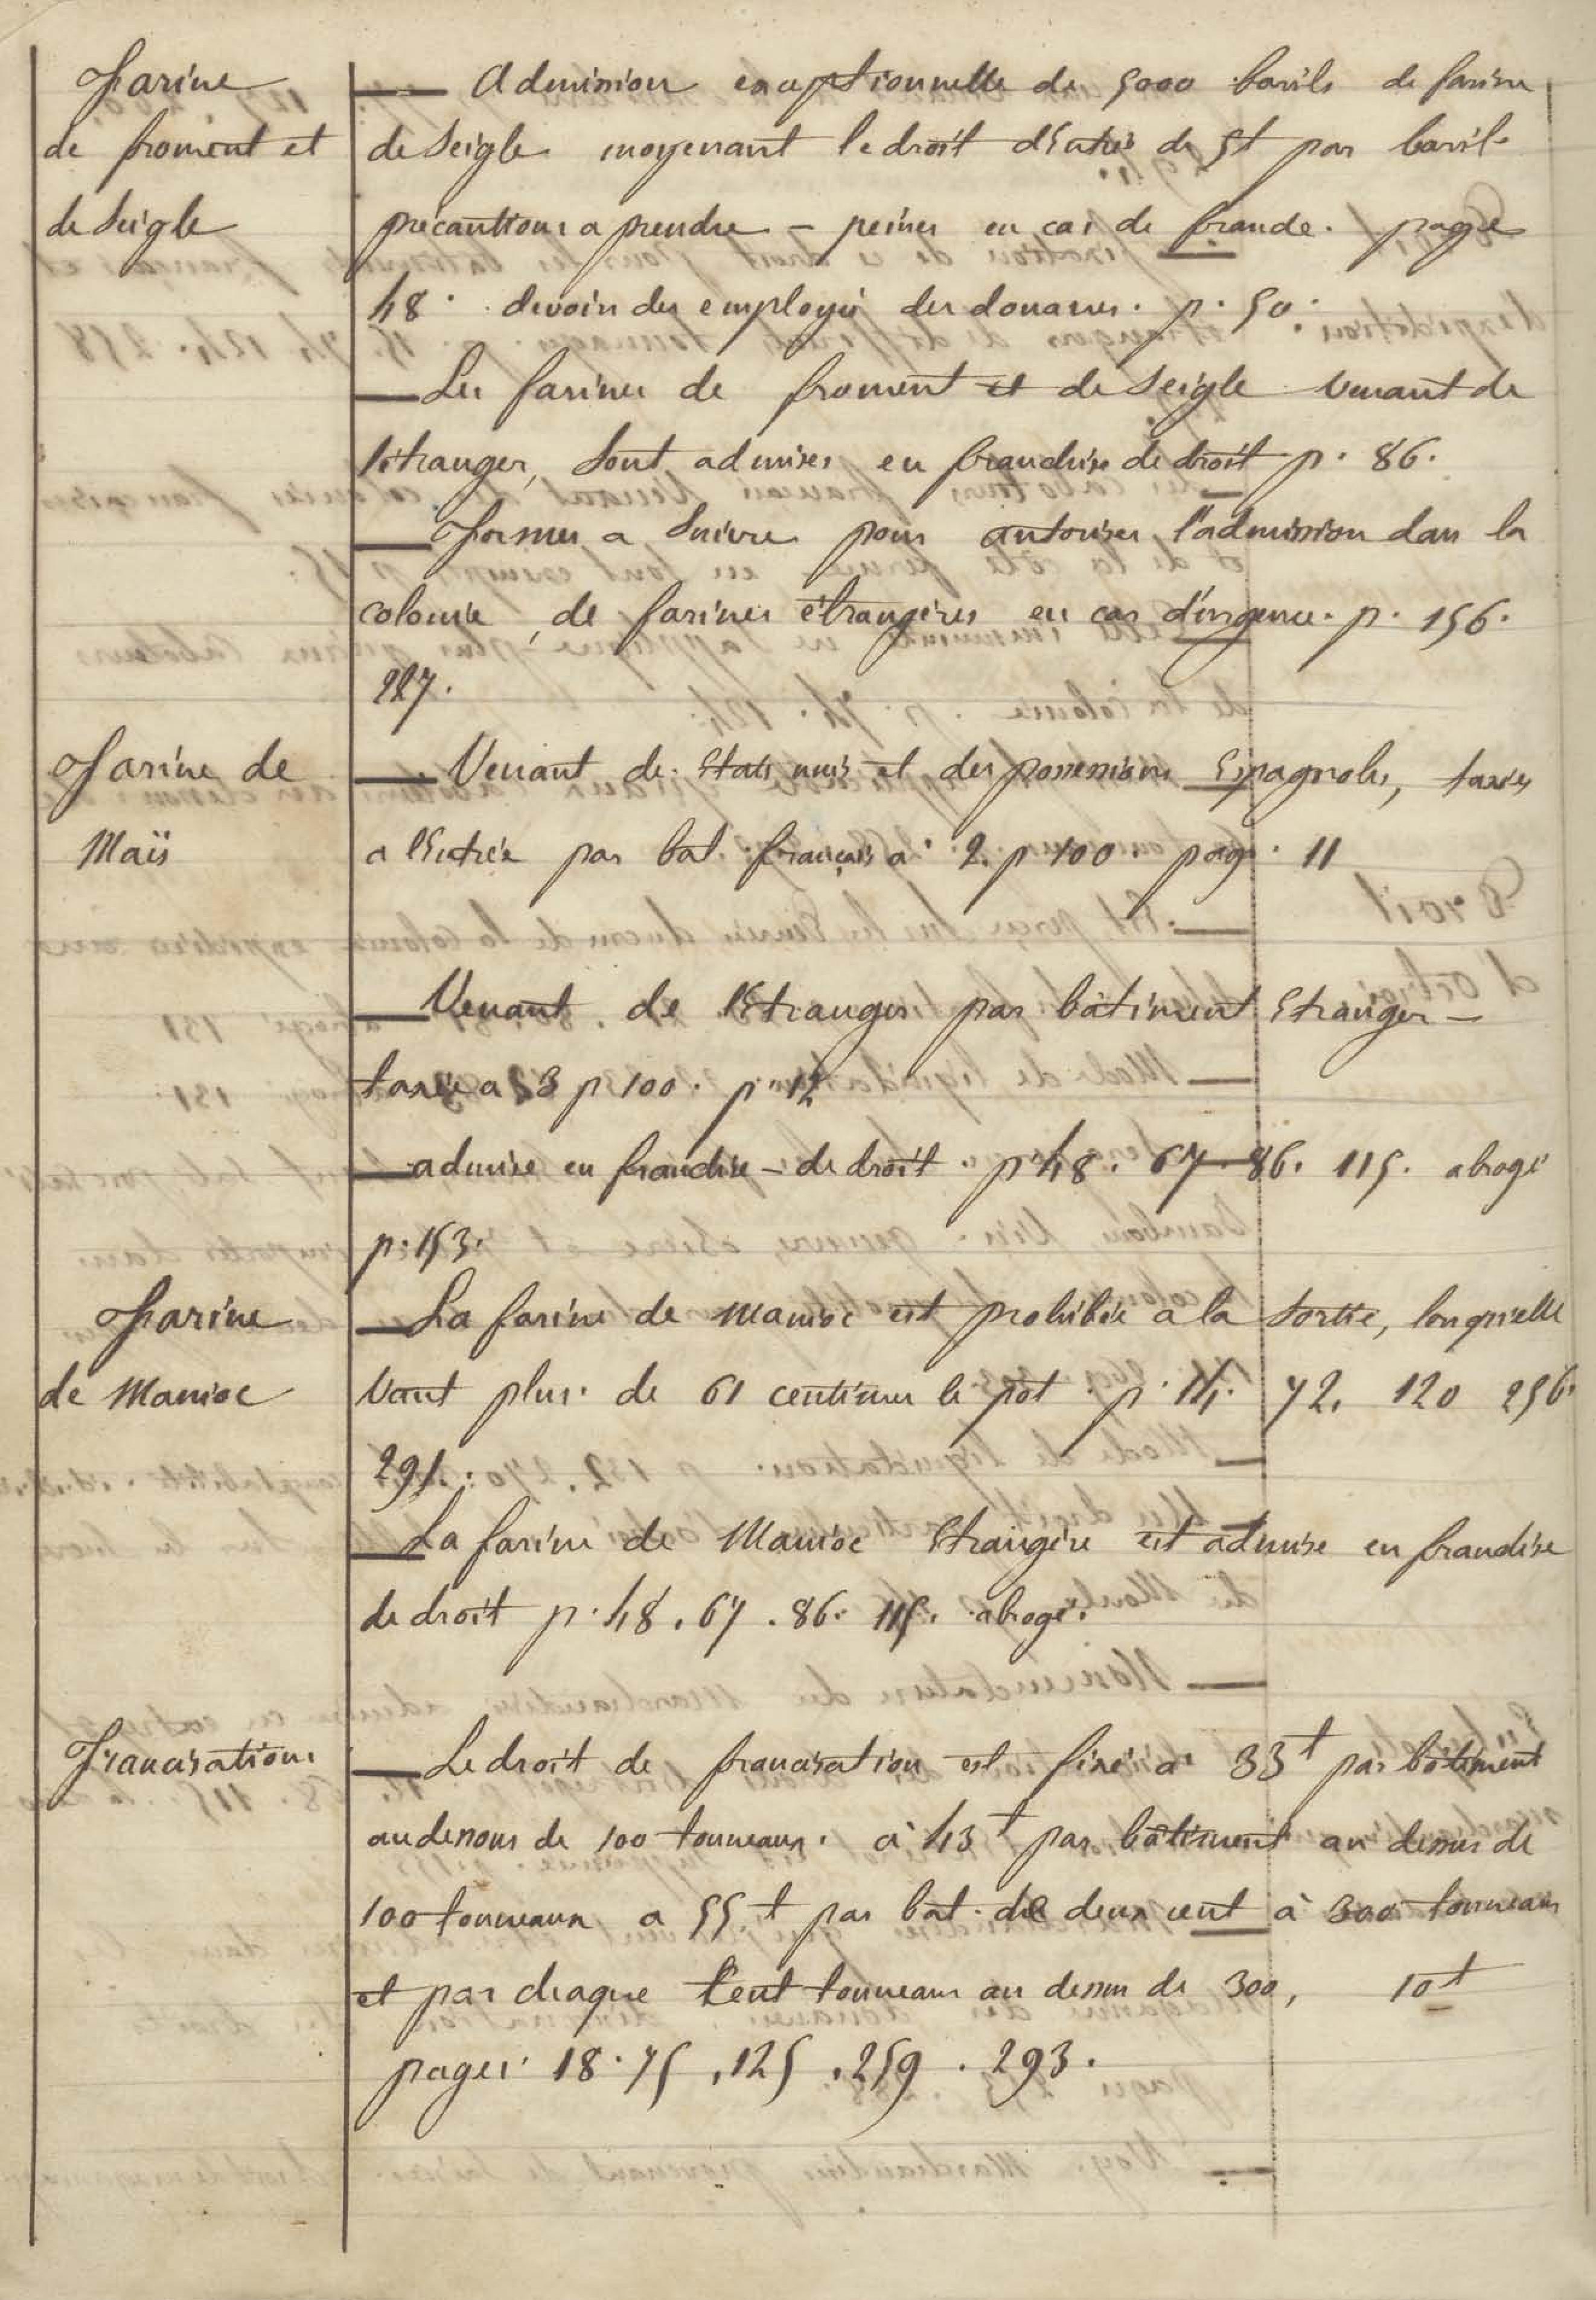 Farine
de froment et
de Seigle
— Admission exceptionnelle de 5000 barils de farine
de Seigle moyenant le droit d'Entrée de 5f par baril
précautions a prendre – peines en cas de fraude. page
48. devoir des employés des douanes. p. 50.
— Les farines de froment et de Seigle venant de
l'étranger, sont admises en franchise de droit p. 86.
— Formes a Suivre pour autoriser l'admission dans la
colonie, de farines étrangères en cas d'urgence. p. 156.
227.
Farine de
Maïs
— Venant des Etats unis et des possessions Espagnoles, taxées
a l'Entrée par bat. français a 2. p 100. page. 11
— Venant de l'Etranger par bâtiment Etranger –
taxée a 3 p 100. p. 12
— admise en franchise – de droit. p. 48. 67. 86. 115. abrogé
p. 153.
Farine
de Manioc
— La farine de Manioc est prohibée a la Sortie, lorsqu'elle
Vaut plus. de 61 centimes le pot. p. 14. 72. 120 256.
291.
— La farine de Manioc Etrangère est admise en franchise
de droit p. 48. 67. 86. 115. abrogé.
Francisation
— Le droit de francisation est fixé a 33f par bâtiment
au dessous de 100 tonneaux. à 43f par bâtiment au dessus de
100 tonneaux a 55f par bat. de deux cent à 300 tonneaux
et par chaque Cent tonneaux au dessus de 300, 10f
pages. 18. 75. 125. 259. 293.